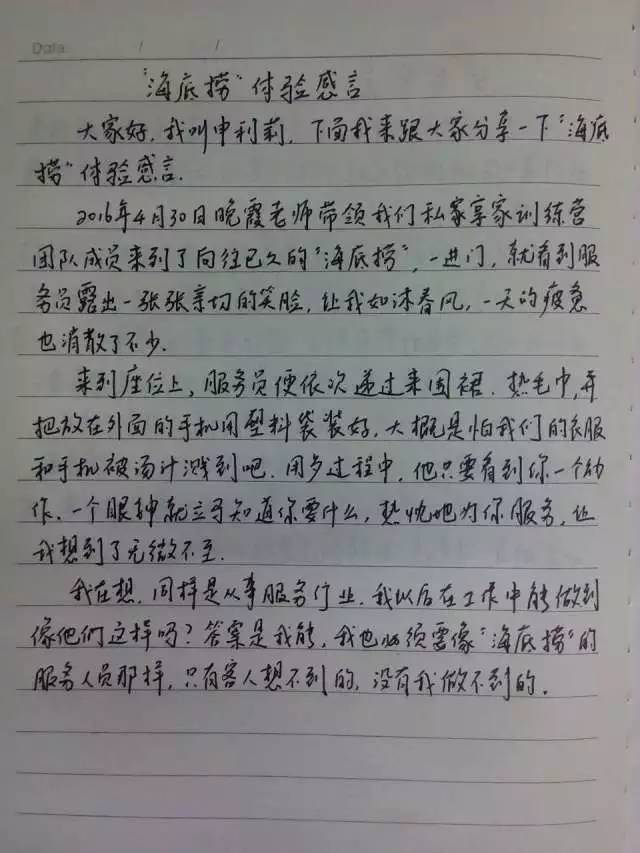 Data / /
“海底捞”体验感言
大家好，我叫申利莉，下面我来跟大家分享一下“海底
捞”体验感言.
2016年4月30日晚霞老师带领我们私家享家训练营
团队成员来到了向往已久的“海底捞”，一进门，就看到服
务员露出一张张亲切的笑脸，让我如沐春风，一天的疲惫
也消散了不少.
来到座位上，服务员便依次递过来围裙、热毛巾，并
把放在外面的手机用塑料袋装好，大概是怕我们的衣服
和手机被汤汁溅到吧.用歺过程中，他只要看到你一个动
作、一个眼神就立马知道你要什么，热忱地为你服务，让
我想到了无微不至.
我在想，同样是从事服务行业，我以后在工作中能做到
像他们这样吗？答案是我能，我也必须要像“海底捞”的
服务人员那样，只有客人想不到的，没有我做不到的.